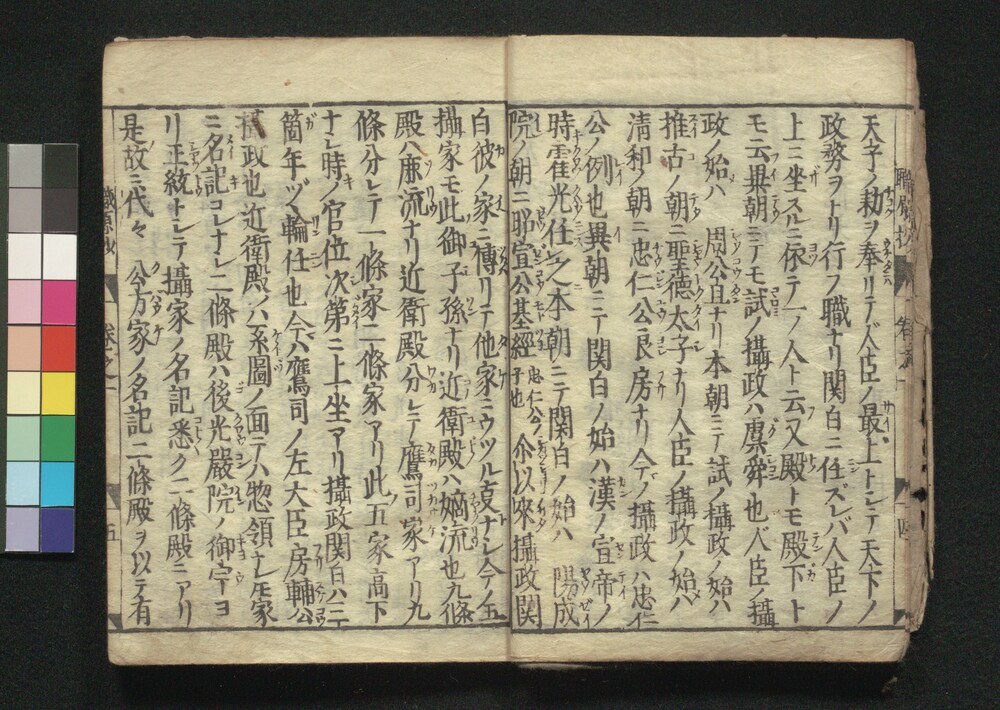 天子ノ勅ヲ奉リテ人臣ノ最上トシテ天下ノ
政務ヲトリ行フ職ナリ関白ニ任ズレバ人臣ノ
上ニ坐スルニ依テ一ノ人ト云又殿トモ殿下ト
モ云異朝ニテモ試ノ攝政ハ虞舜也人臣ノ攝
政ノ始ハ 周公旦ナリ本朝ニテ試ノ攝政ノ始ハ
推古ノ朝ニ聖德太子ナリ人臣ノ攝政ノ始ハ
清和ノ朝ニ忠仁公良房ナリ今ノ攝政ハ忠仁
公ノ例也異朝ニテ関白ノ始ハ漢ノ宣帝ノ
時霍光任之本朝ニテ関白ノ始ハ 陽成
院ノ朝ニ昭宣公基經忠仁公ノ子也 尒以來攝政関
白彼ノ家ニ傳リテ他家ニウツル㕝ナシ今ノ五
攝家モ此御子孫ナリ近衛殿ハ嫡流也九條
殿ハ庶流ナリ近衛殿分レテ鷹司家アリ九
條分レテ一條家二條家アリ此五家高下
ナシ時ノ官位次第ニ上坐アリ攝政関白ハ三
箇年ヅヽ輪任也今ハ鷹司ノ左大臣房輔公
攝政也近衛殿ハ系圖ノ面テハ惣領ナレ𪜈家
ニ名記コレナシ二條殿ハ後光嚴院ノ御宇ヨ
リ正統トシテ攝家ノ名記悉ク二條殿ニアリ
是故ニ代々 公方家ノ名記二條殿ヲ以テ有
職原抄 卷之一 五